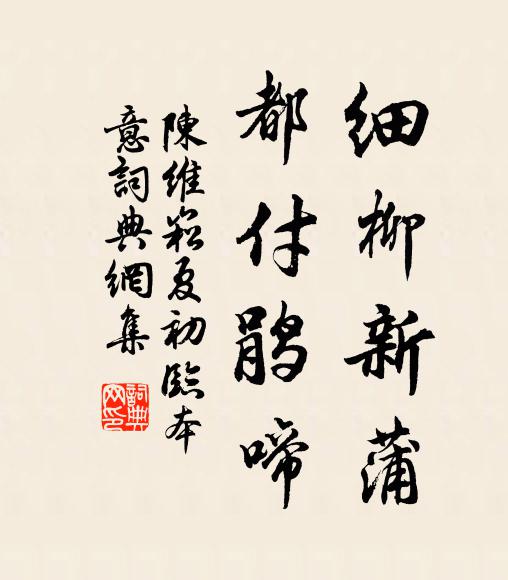 細柳新蒲
都付鵑啼
陳維崧夏初臨本
意詞典網集
詞典
网印